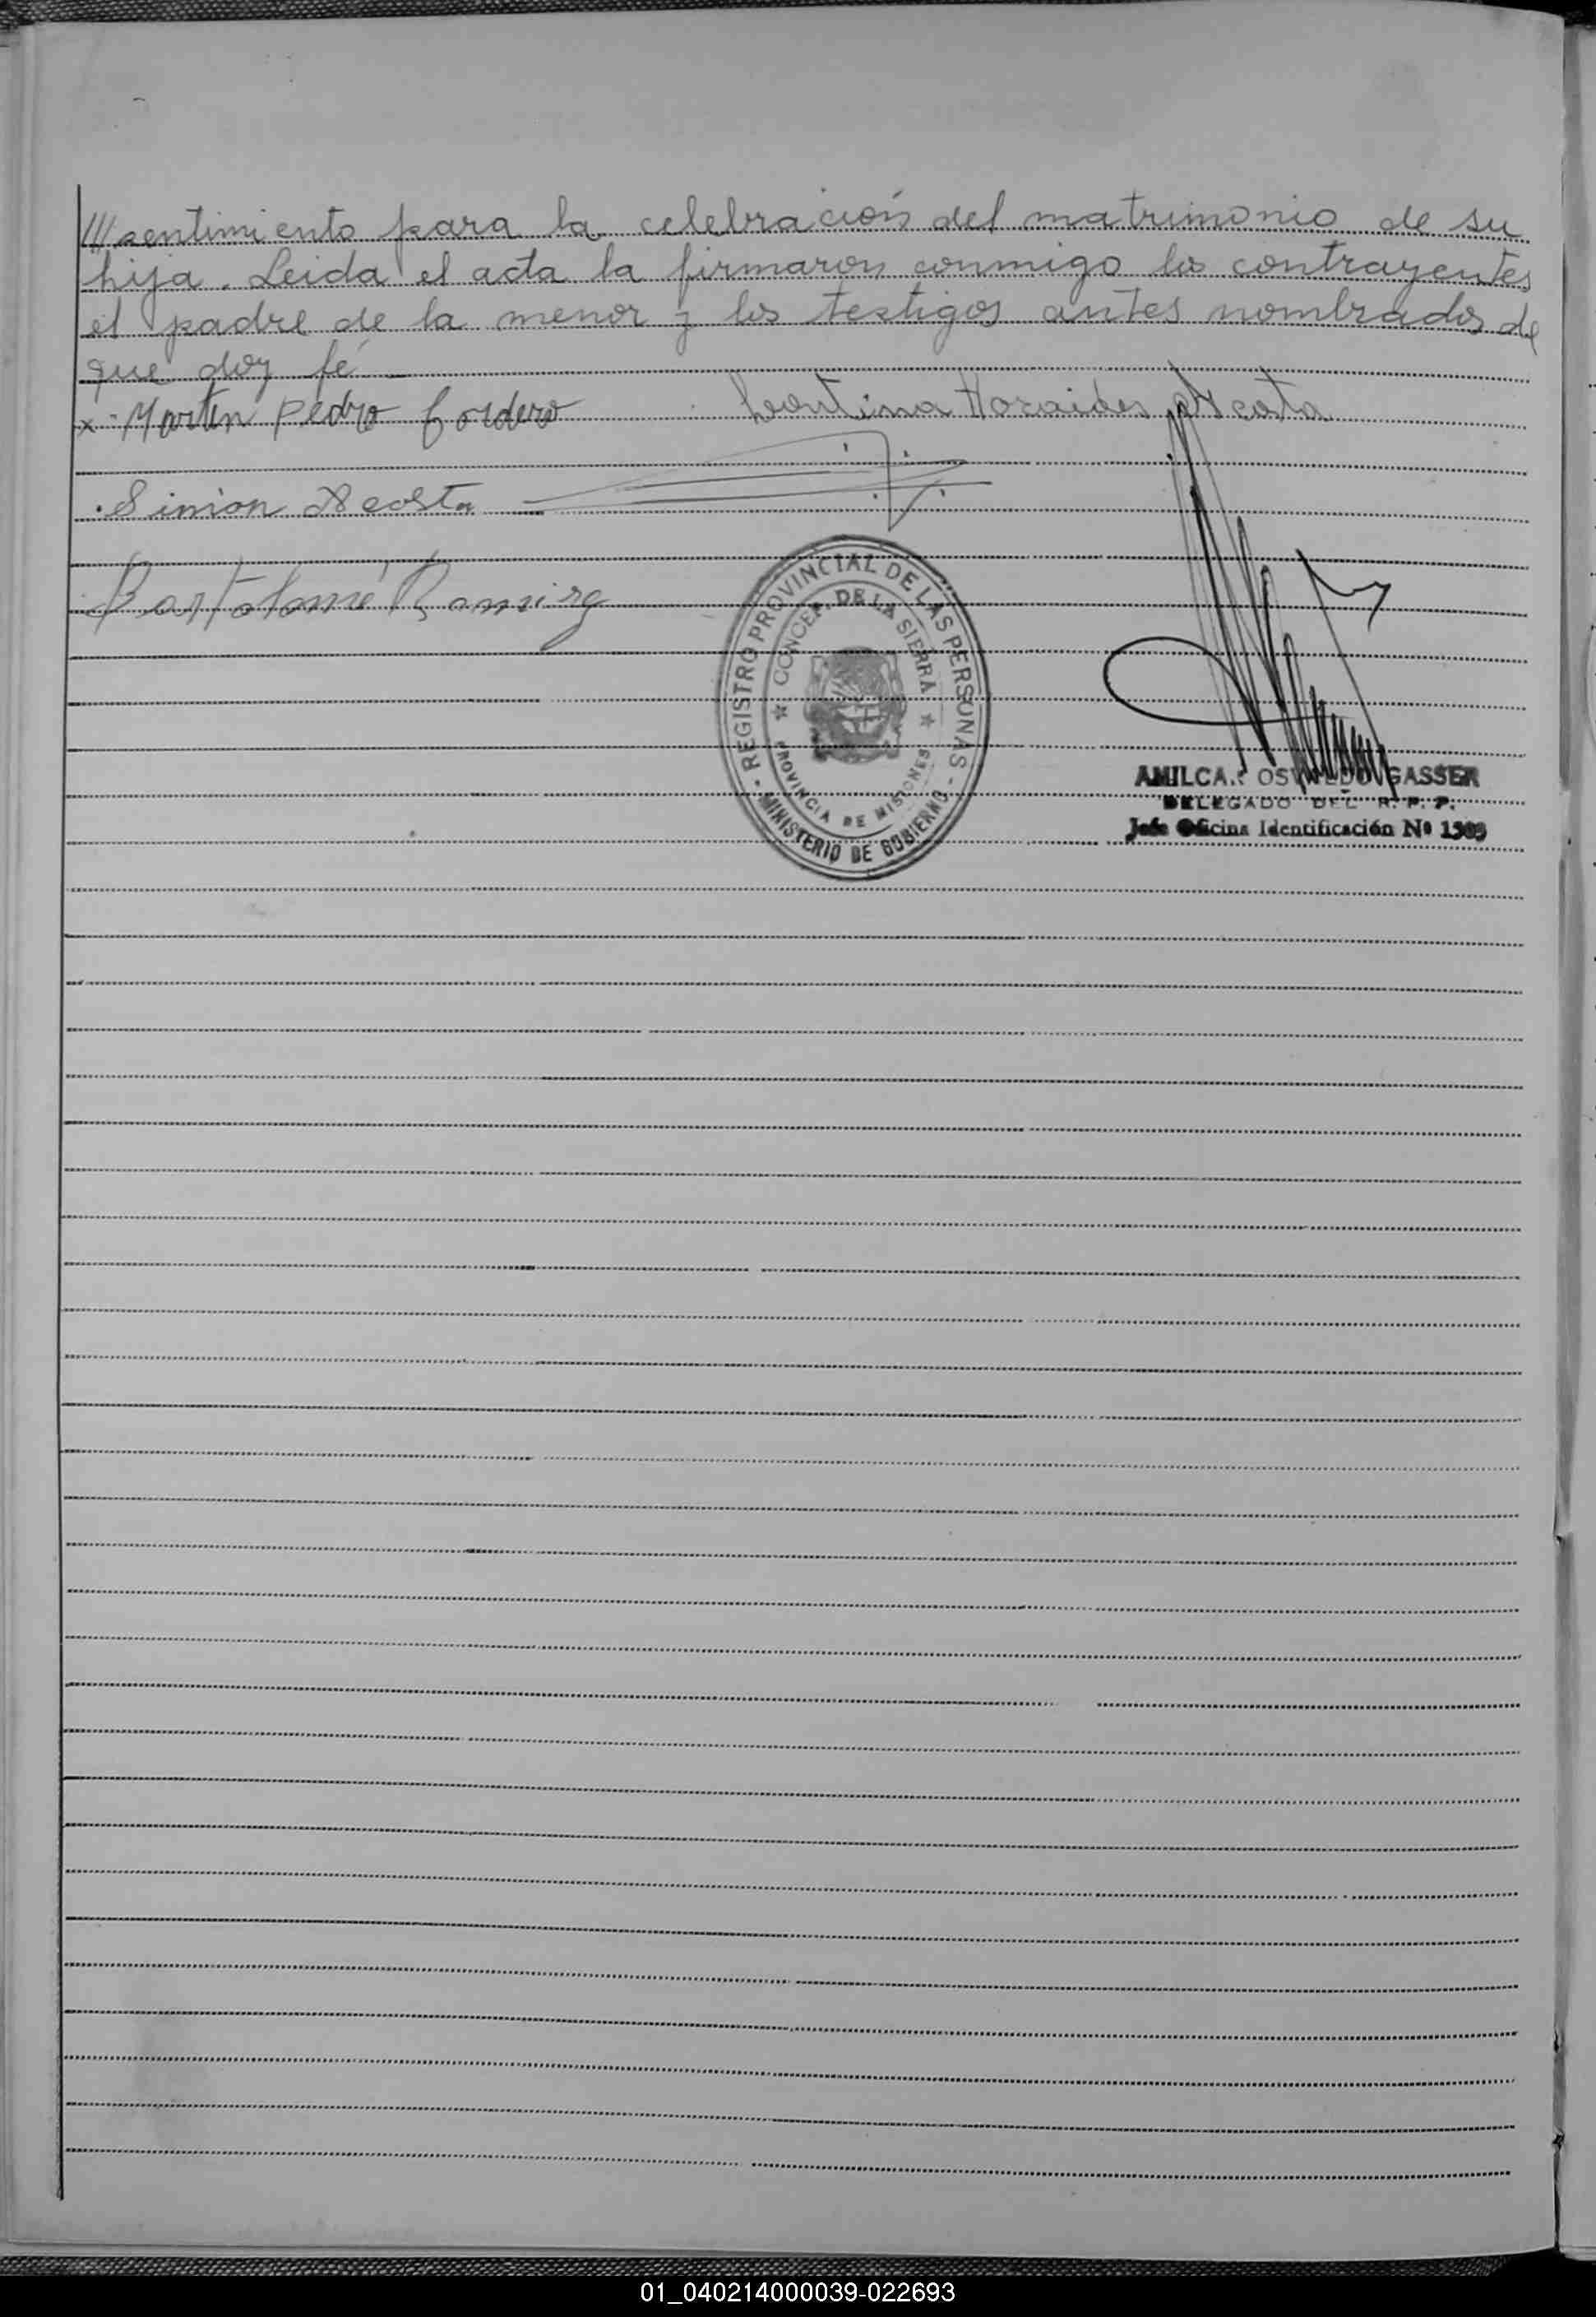 ///sentimiento para la celebración del matrimonio de su
hija. Leida el acta la firmaron conmigo los contrayentes
el padre de la menor y los testigos antes nombrados de
que doy fé
x Martin Pedro Cordero Leontina Acosta
Simion Acosta
Bartolomé Ramirez
REGISTRO PROVINCIAL DE LAS PERSONAS
CONCEP. DE LA SIERRA
PROVINCIA DE MISIONES
MINISTERIO DE GOBIERNO
AMILCAR OSVALDO GASSER
DELEGADO DEL R. P. P.
Jefe Oficina Identificación Nº
01_040214000039-022693